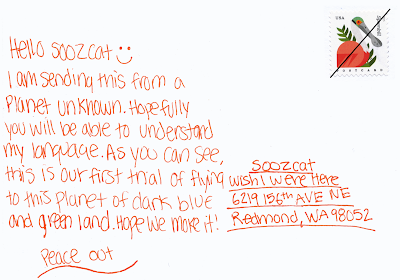 Hello Soozcat
I am sending this from a
Planet unknown. Hopefully
you will be able to understand
my language. As you can see,
this is our first trial of flying
to this planet of dark blue
and green land. Hope we make it!
Peace out
Soozcat
Wish I Were Here
6219 156th AVE NE
Redmond, WA 98052
USA
POSTCARD